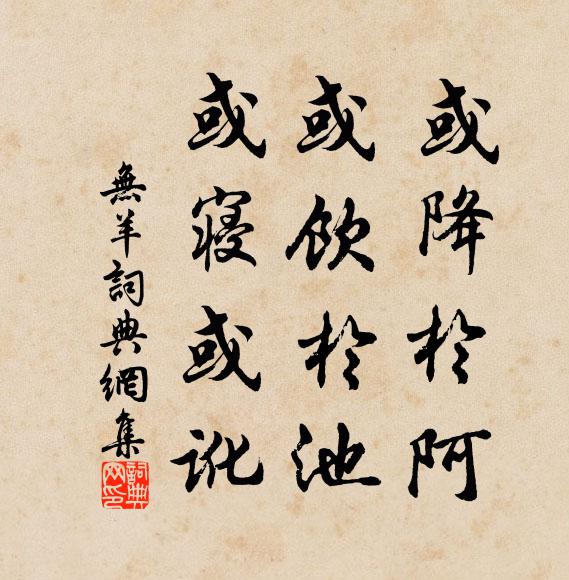 或降於阿
或飲於池
或寢或訛
無羊詞典網集
詞典網印